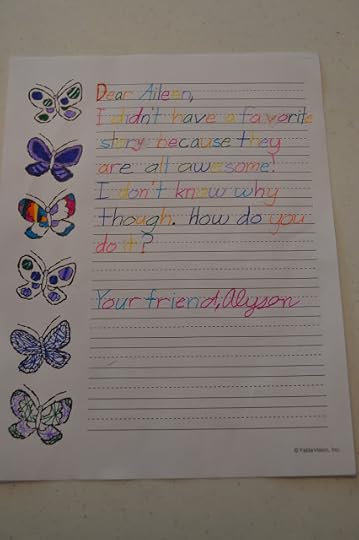 Dear Aileen,
I didn't have a favorite
story because they
are all awesome!
I don't know why
though. How do you
do it?
Your friend, Alyson
© FableVision, Inc.